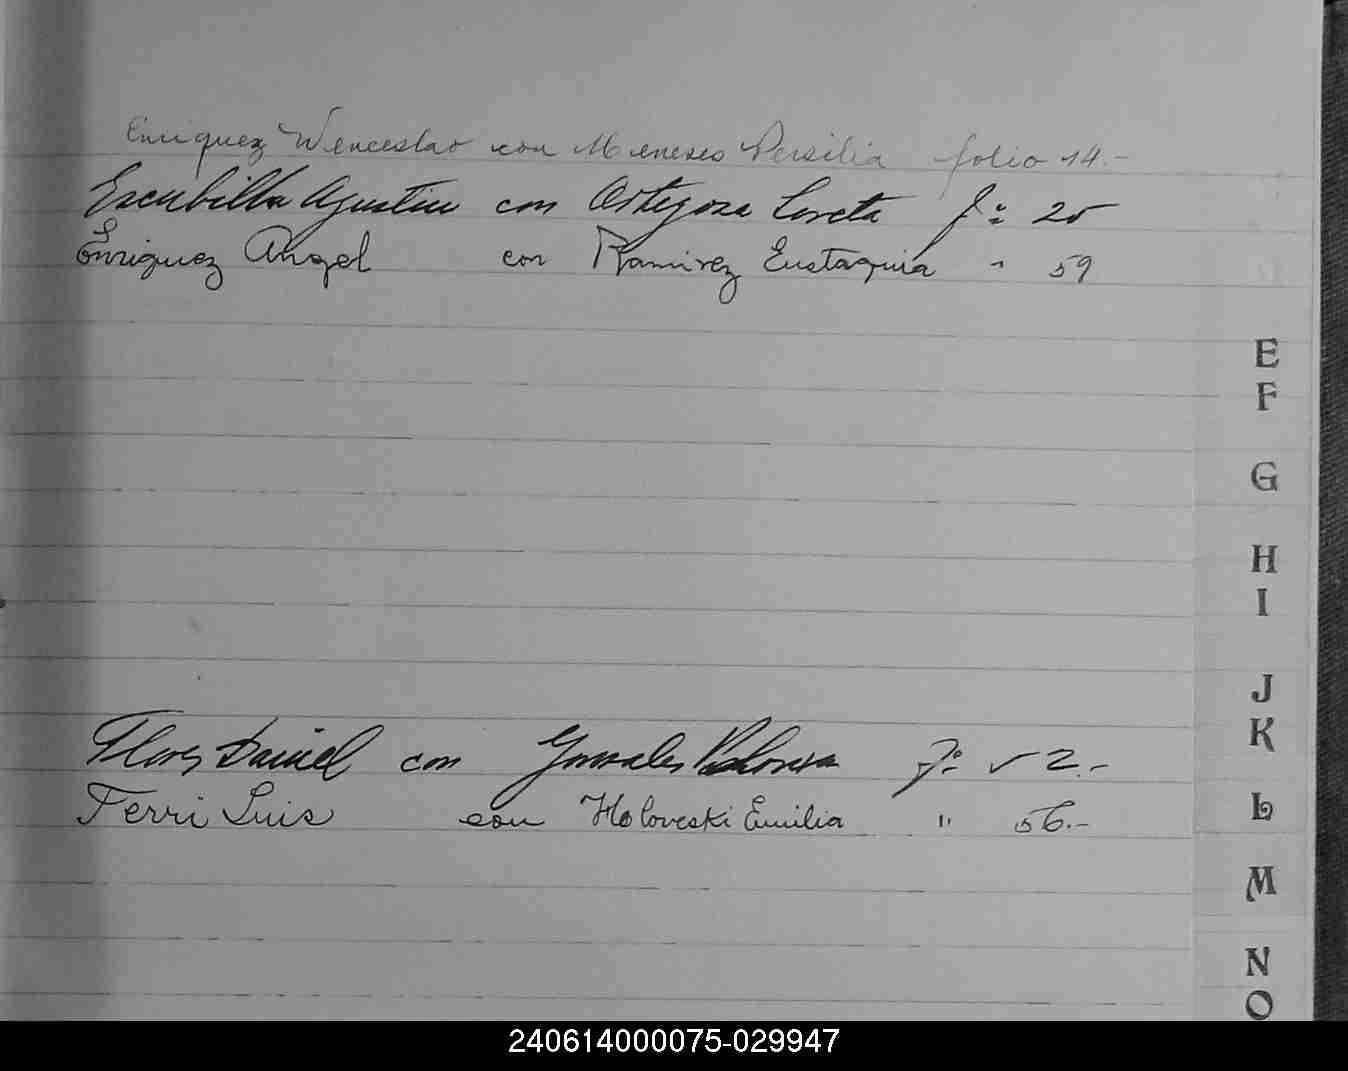 Enriquez Wenceslao con Meneses Persilia folio 14.-
Escubilla Agustin con Ortegoza Loreta Fº 25
Enriquez Angel con Ramirez Eustaquia " 59
E
F
G
H
I
J
K
Flores Daniel con Gonzales Fº 52.-
L
Ferri Luis con Holoveski Emilia " 56.-
M
N
O
240614000075-029947